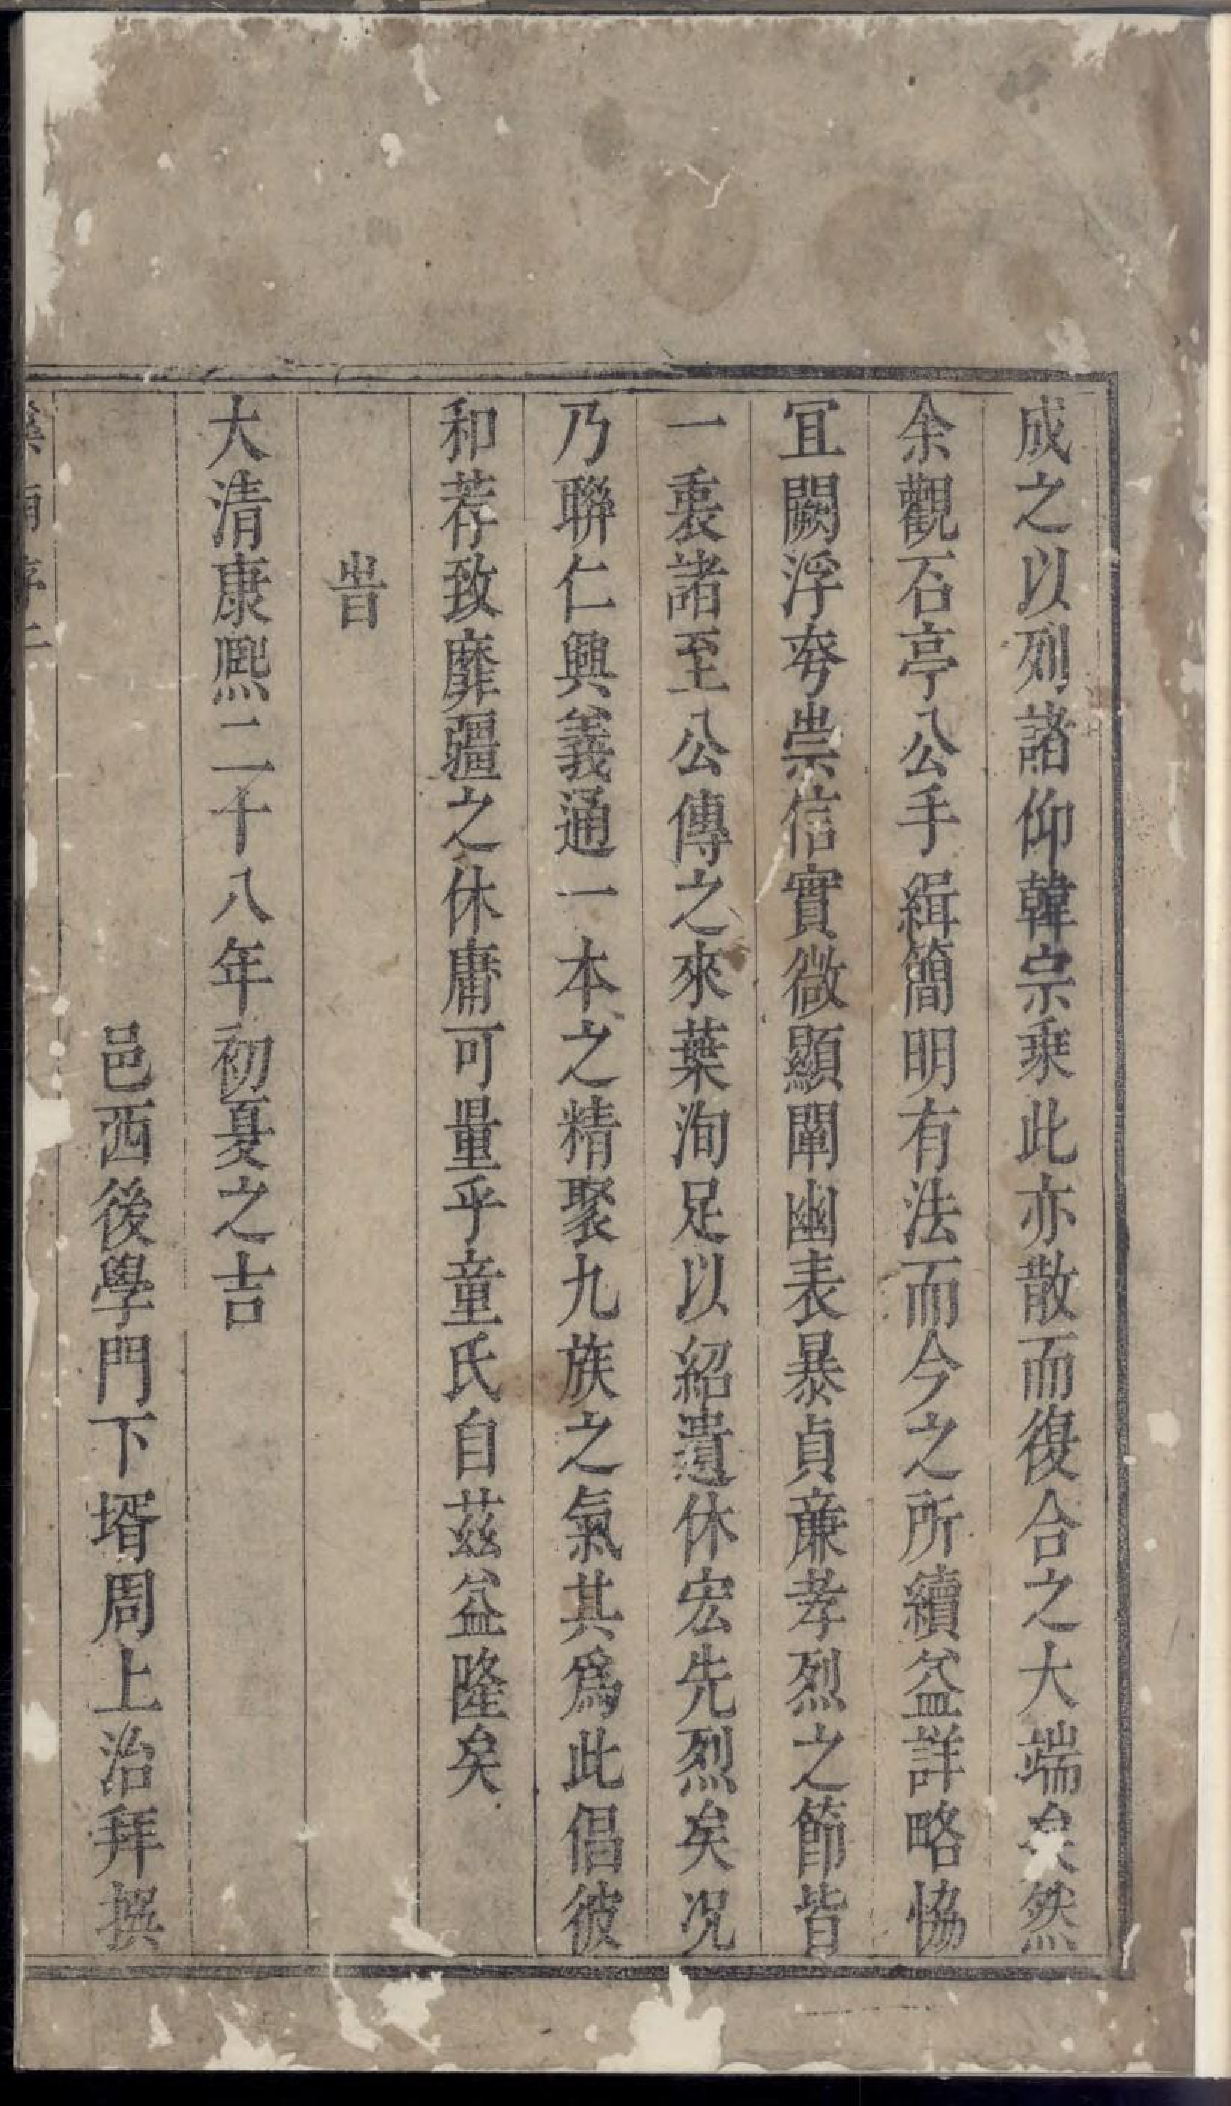 成之以列諸仰韓宗乗此亦散而復合之大端矣然
余觀石亭公手緝簡明有法而今之所續益詳略恊
冝闕浮夸崇信實微顯闡幽表暴貞亷孝烈之節皆
一裏諸至公傳之來葉洵足以紹遺休宏先烈矣况
乃聯仁興義通一本之精聚九族之氣其爲此倡彼
和荐致靡疆之休庸可量乎童氏自兹益隆矣
旹
大清康熙二十八年初夏之吉
邑西後學門下壻周上治拜撰